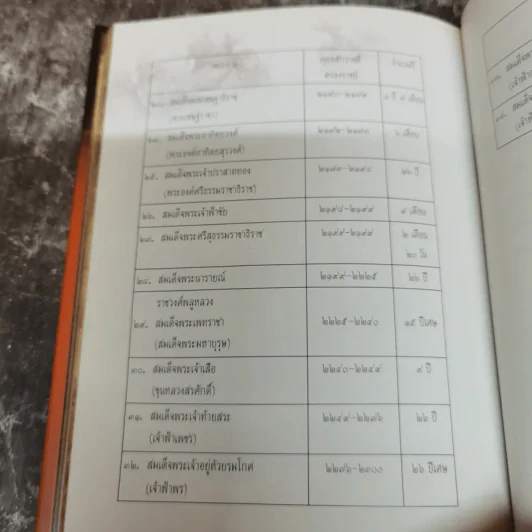 พุทธศักราชที่ จำนวนปี
ครองราชย์
๒๓. สมเด็จพระเชษฐาธิราช
๖ เดือน
(พระองค์อาทิตยสุรวงศ์)
๒๕. สมเด็จพระเจ้าปราสาททอง ๒๑๗๓-๒๑๙๘ ๒๖ ปี
(พระองค์ศรีธรรมราชาธิราช)
๒๖. สมเด็จพระเจ้าฟ้าชัย ๒๑๙๘-๒๑๙๙ ๙ เดือน
๒๗. สมเด็จพระศรีสุธรรมราชาธิราช ๒๑๙๙-๒๑๙๙ ๒ เดือน
๒๐ วัน
๒๘. สมเด็จพระนารายณ์ ๒๑๙๙-๒๒๒๕ ๒๖ ปี
ราชวงศ์พลูหลวง
๒๙. สมเด็จพระเพทราชา ๒๒๒๕-๒๒๔๐ ๑๕ ปีเศษ
(สมเด็จพระมหาบุรุษ)
๓๐. สมเด็จพระเจ้าเสือ ๒๒๔๐-๒๒๔๙ ๙ ปี
(ขุนหลวงสรศักดิ์)
๓๑. สมเด็จพระเจ้าท้ายสระ ๒๒๔๙-๒๒๗๖ ๒๖ ปี
(เจ้าฟ้าเพชร)
๓๒. สมเด็จพระเจ้าอยู่หัวบรมโกศ ๒๒๗๖-๒๓๐๐ ๒๖ ปีเศษ
(เจ้าฟ้าพร)